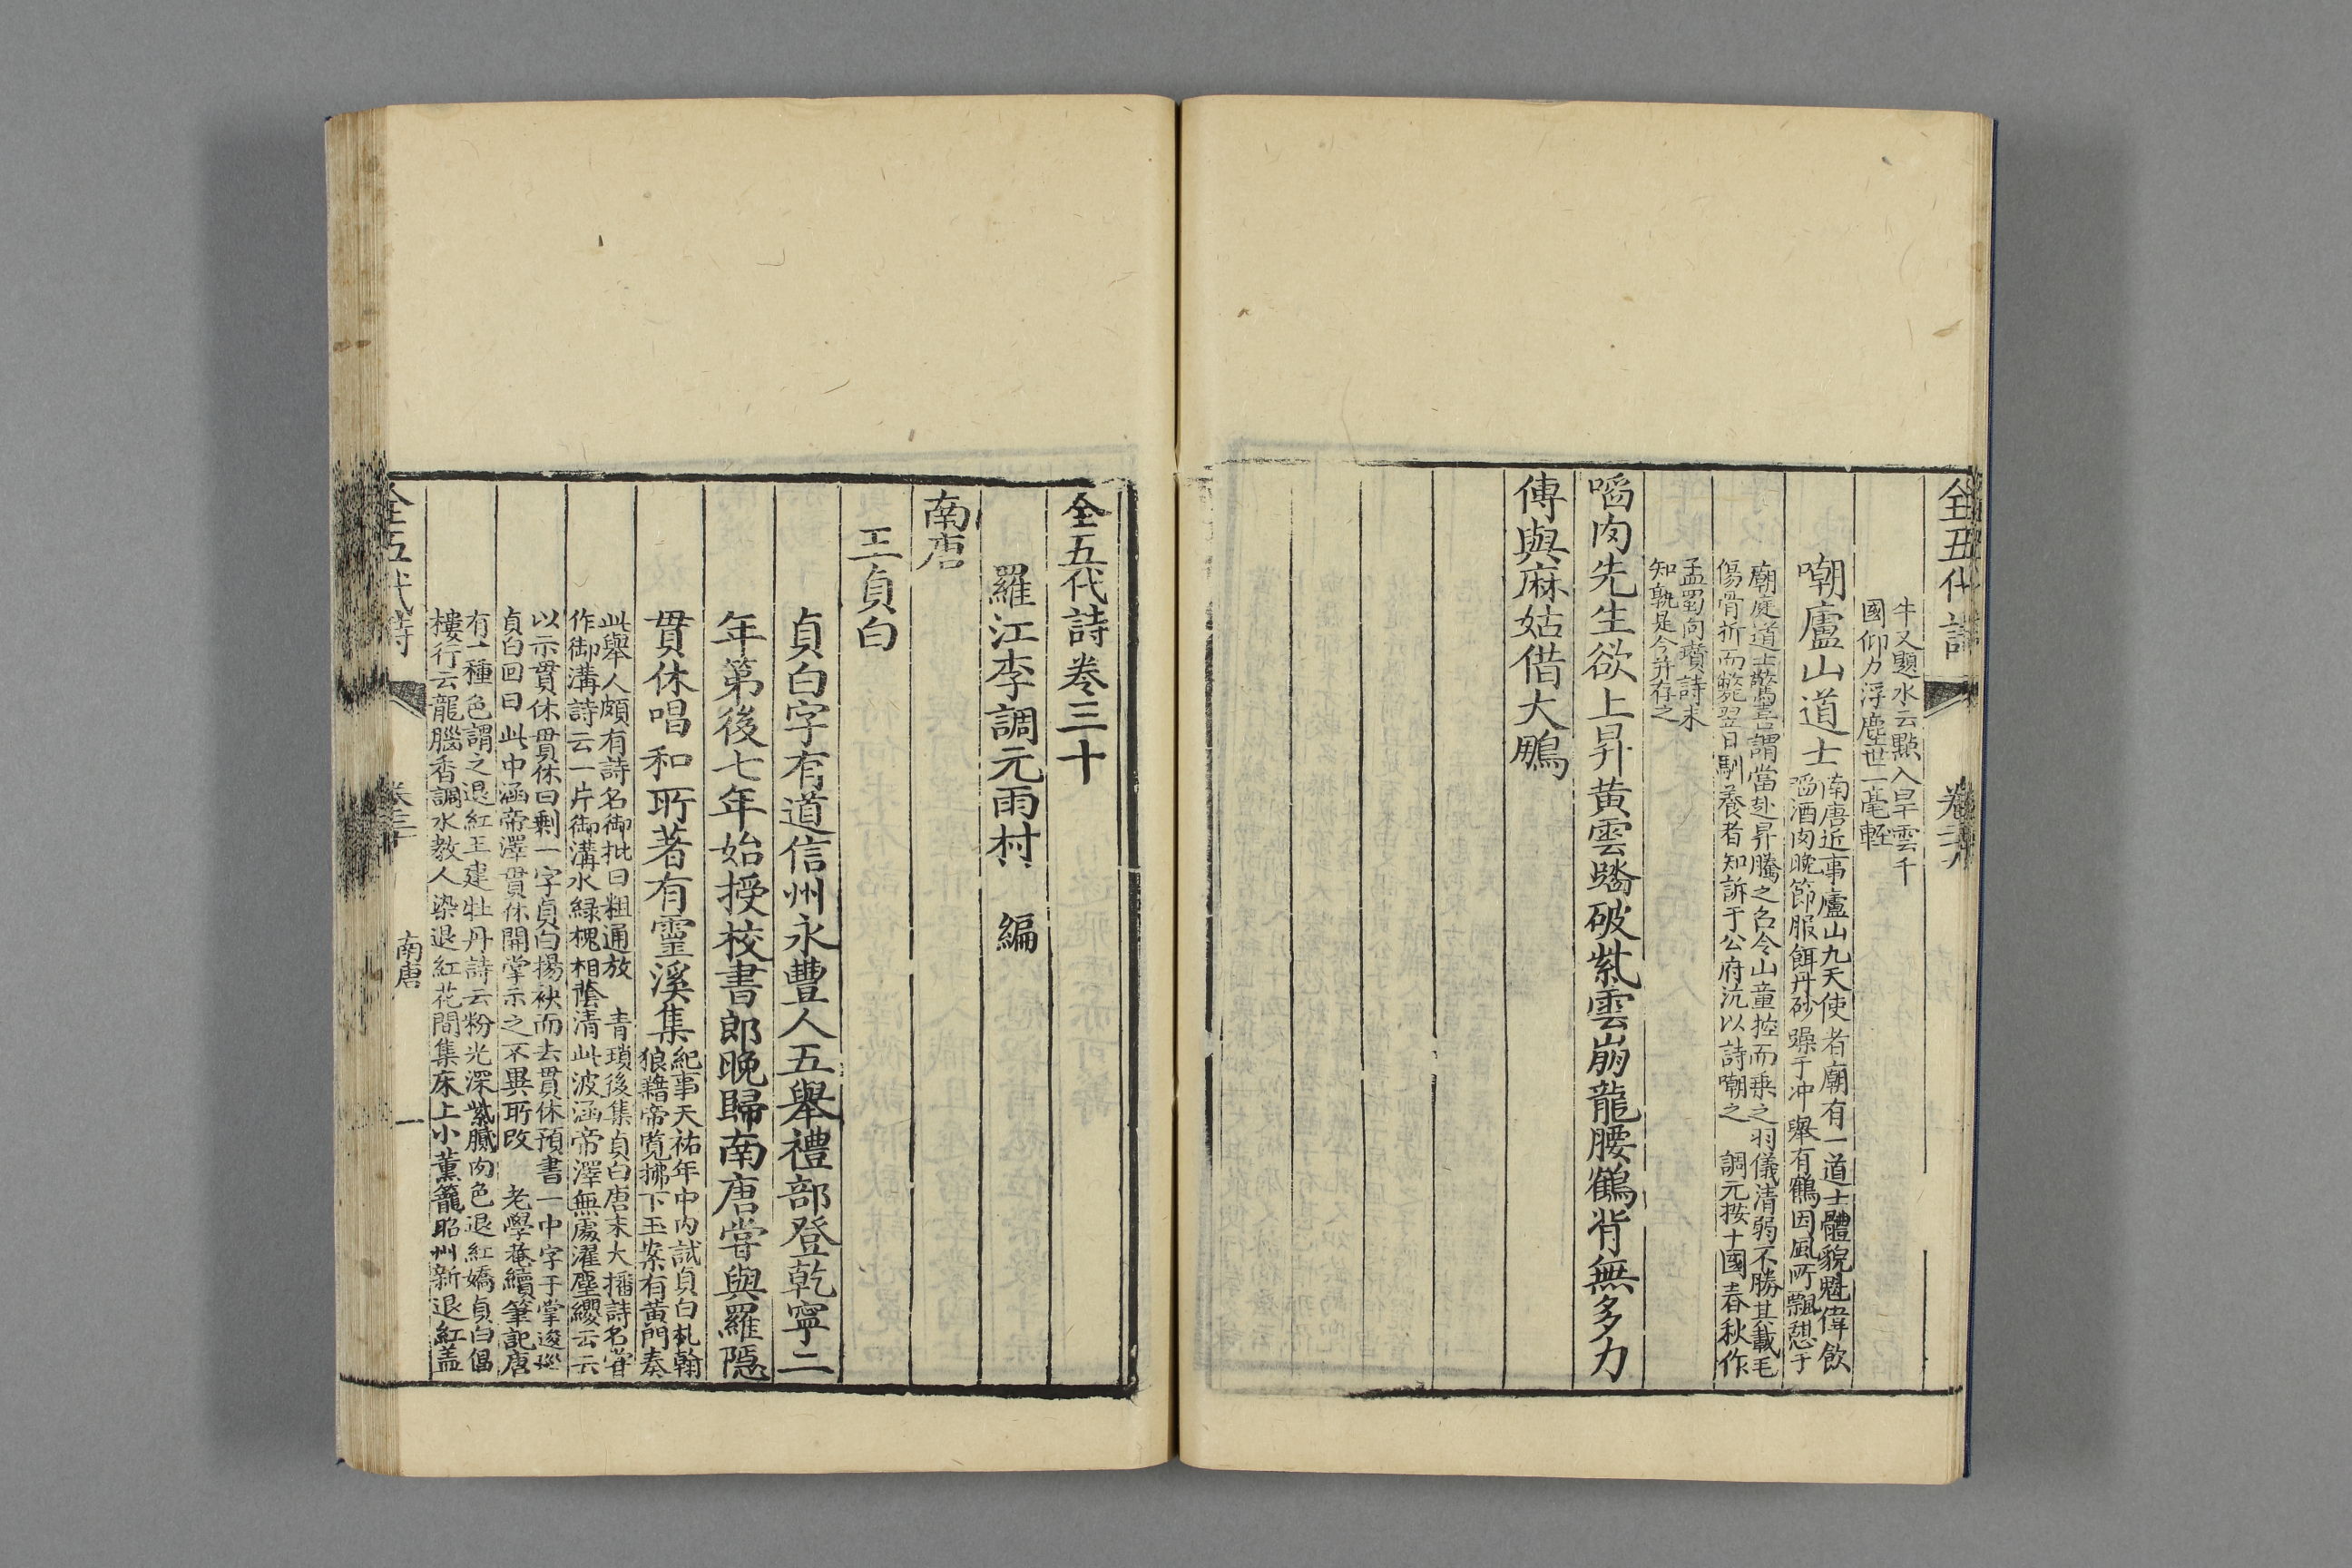 全五代詩
卷二十九
牛又題水云點入旱雲千
國仰力浮塵世一毫輕
嘲廬山道士
南唐近事廬山九天使者廟有一道士體貌魁偉飲
㗖酒肉晚節服餌丹砂躁于冲舉有鶴因風所飄憇于
廟庭道士驚喜謂當赴昇騰之召令山童控而乗之羽儀清弱不勝其載毛
傷骨折而斃翌日馴養者知訴于公府沆以詩嘲之　調元按十國春秋作
孟蜀向瓚詩未
知孰是今并存之
㗖肉先生欲上昇黃雲踏破紫雲崩龍腰鶴背無多力
傳與麻姑借大鵬
全五代詩卷三十
羅江李調元雨村　編
南唐
王貞白
貞白字有道信州永豐人五舉禮部登乾寧二
年第後七年始授校書郎晚歸南唐嘗與羅隱
貫休唱和所著有靈溪集
紀事天祐年中内試貞白札翰
狼籍帝覽拂下玉案有黄門奏
此舉人頗有詩名御批曰粗通放　青瑣後集貞白唐末大播詩名嘗
作御溝詩云一片御溝水綠槐相䕃清此波涵帝澤無處濯塵纓云云
以示貫休貫休曰剩一字貞白揚袂而去貫休預書一中字于掌逡廵
貞白回曰此中涵帝澤貫休開掌示之不異所改　老學菴續筆記唐
有一種色謂之退紅王建牡丹詩云粉光深紫膩肉色退紅嬌貞白倡
樓行云龍腦香調水教人染退紅花間集床上小薰籠昭州新退紅盖
全五代詩
卷三十
南唐
一